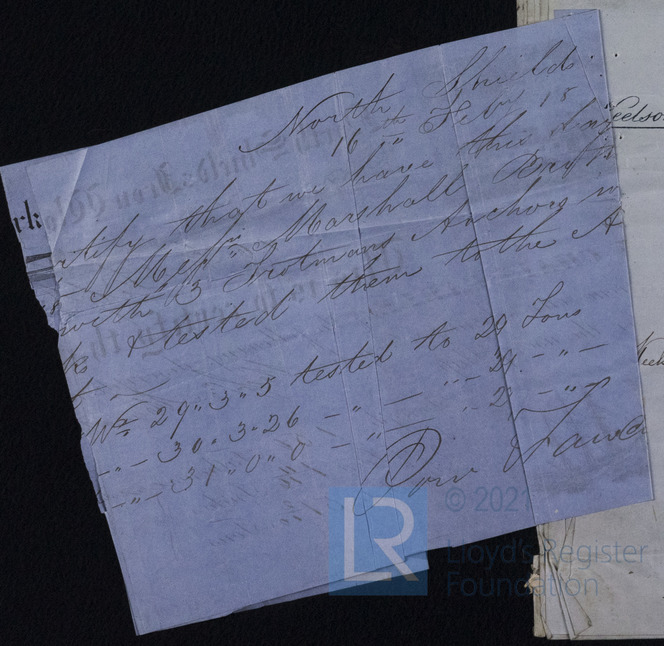 North Shields
16th Feby 18
rk
rtify that we have this
Messrs Marshall Broth
with 3 Trotmans Anchors
& tested them to the A
Wt 29 " 3 " 5 tested to 29 Tons
- " - 30 " 3 " 26 - " - - " - 29 - " -
- " - 31 " 0 " 0 - " - - " - 29 - " -
© 2021
LR
Lloyd's Register
Foundation